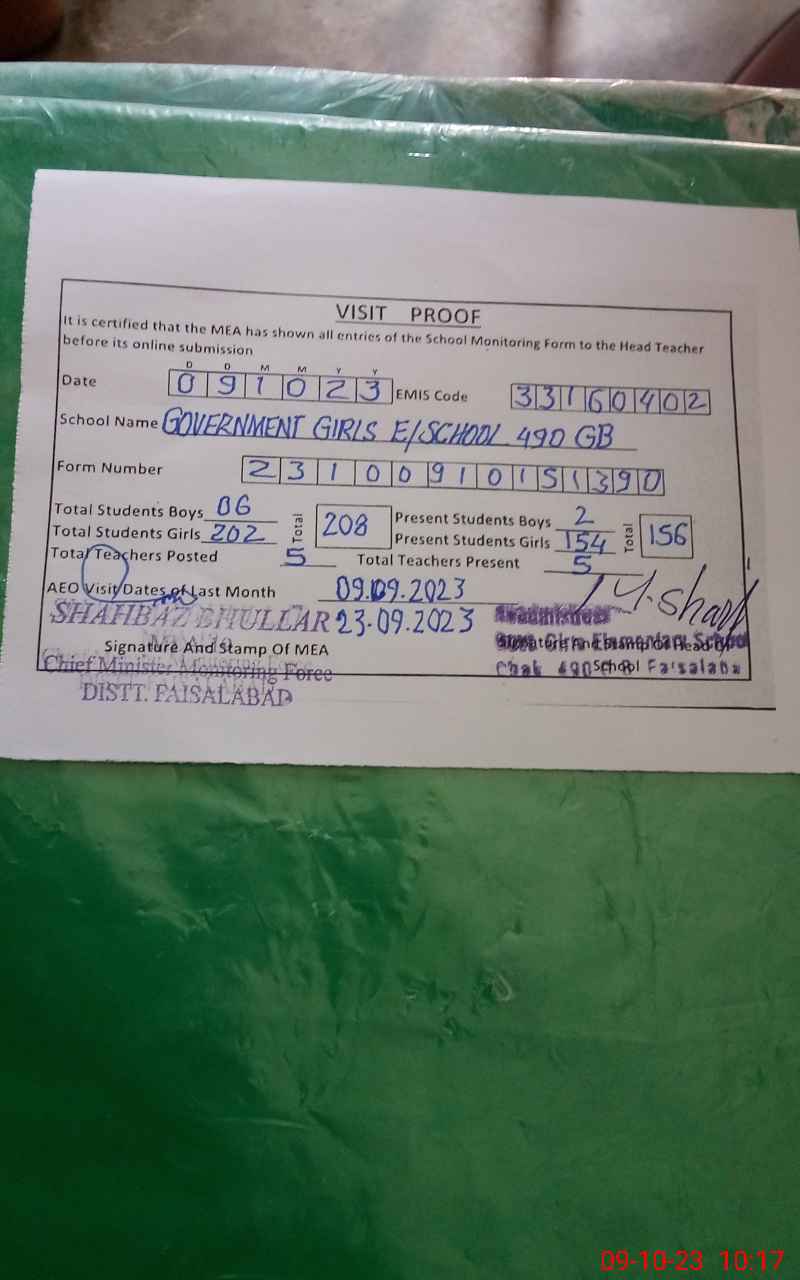 VISIT PROOF
It is certified that the MEA has shown all entries of the School Monitoring Form to the Head Teacher
before its online submission
D D M M Y Y
Date 0 9 1 0 2 3 EMIS Code 3 3 1 6 0 4 0 2
School Name GOVERNMENT GIRLS E/SCHOOL 490 GB
Form Number 2 3 1 0 0 9 1 0 1 5 1 3 9 0
Total Students Boys 06 Total 208 Present Students Boys 2 Total 156
Total Students Girls 202 Present Students Girls 154
Total Teachers Posted 5 Total Teachers Present 5
AEO Visit Dates of Last Month 09.09.2023
SHAHBAZ BHULLAR 23.09.2023
Signature And Stamp Of MEA Signature And Stamp Of Head Of
Chief Minister Monitoring Force School
DISTT. FAISALABAD
Girls Elementary School
Chak 490
09-10-23 10:17